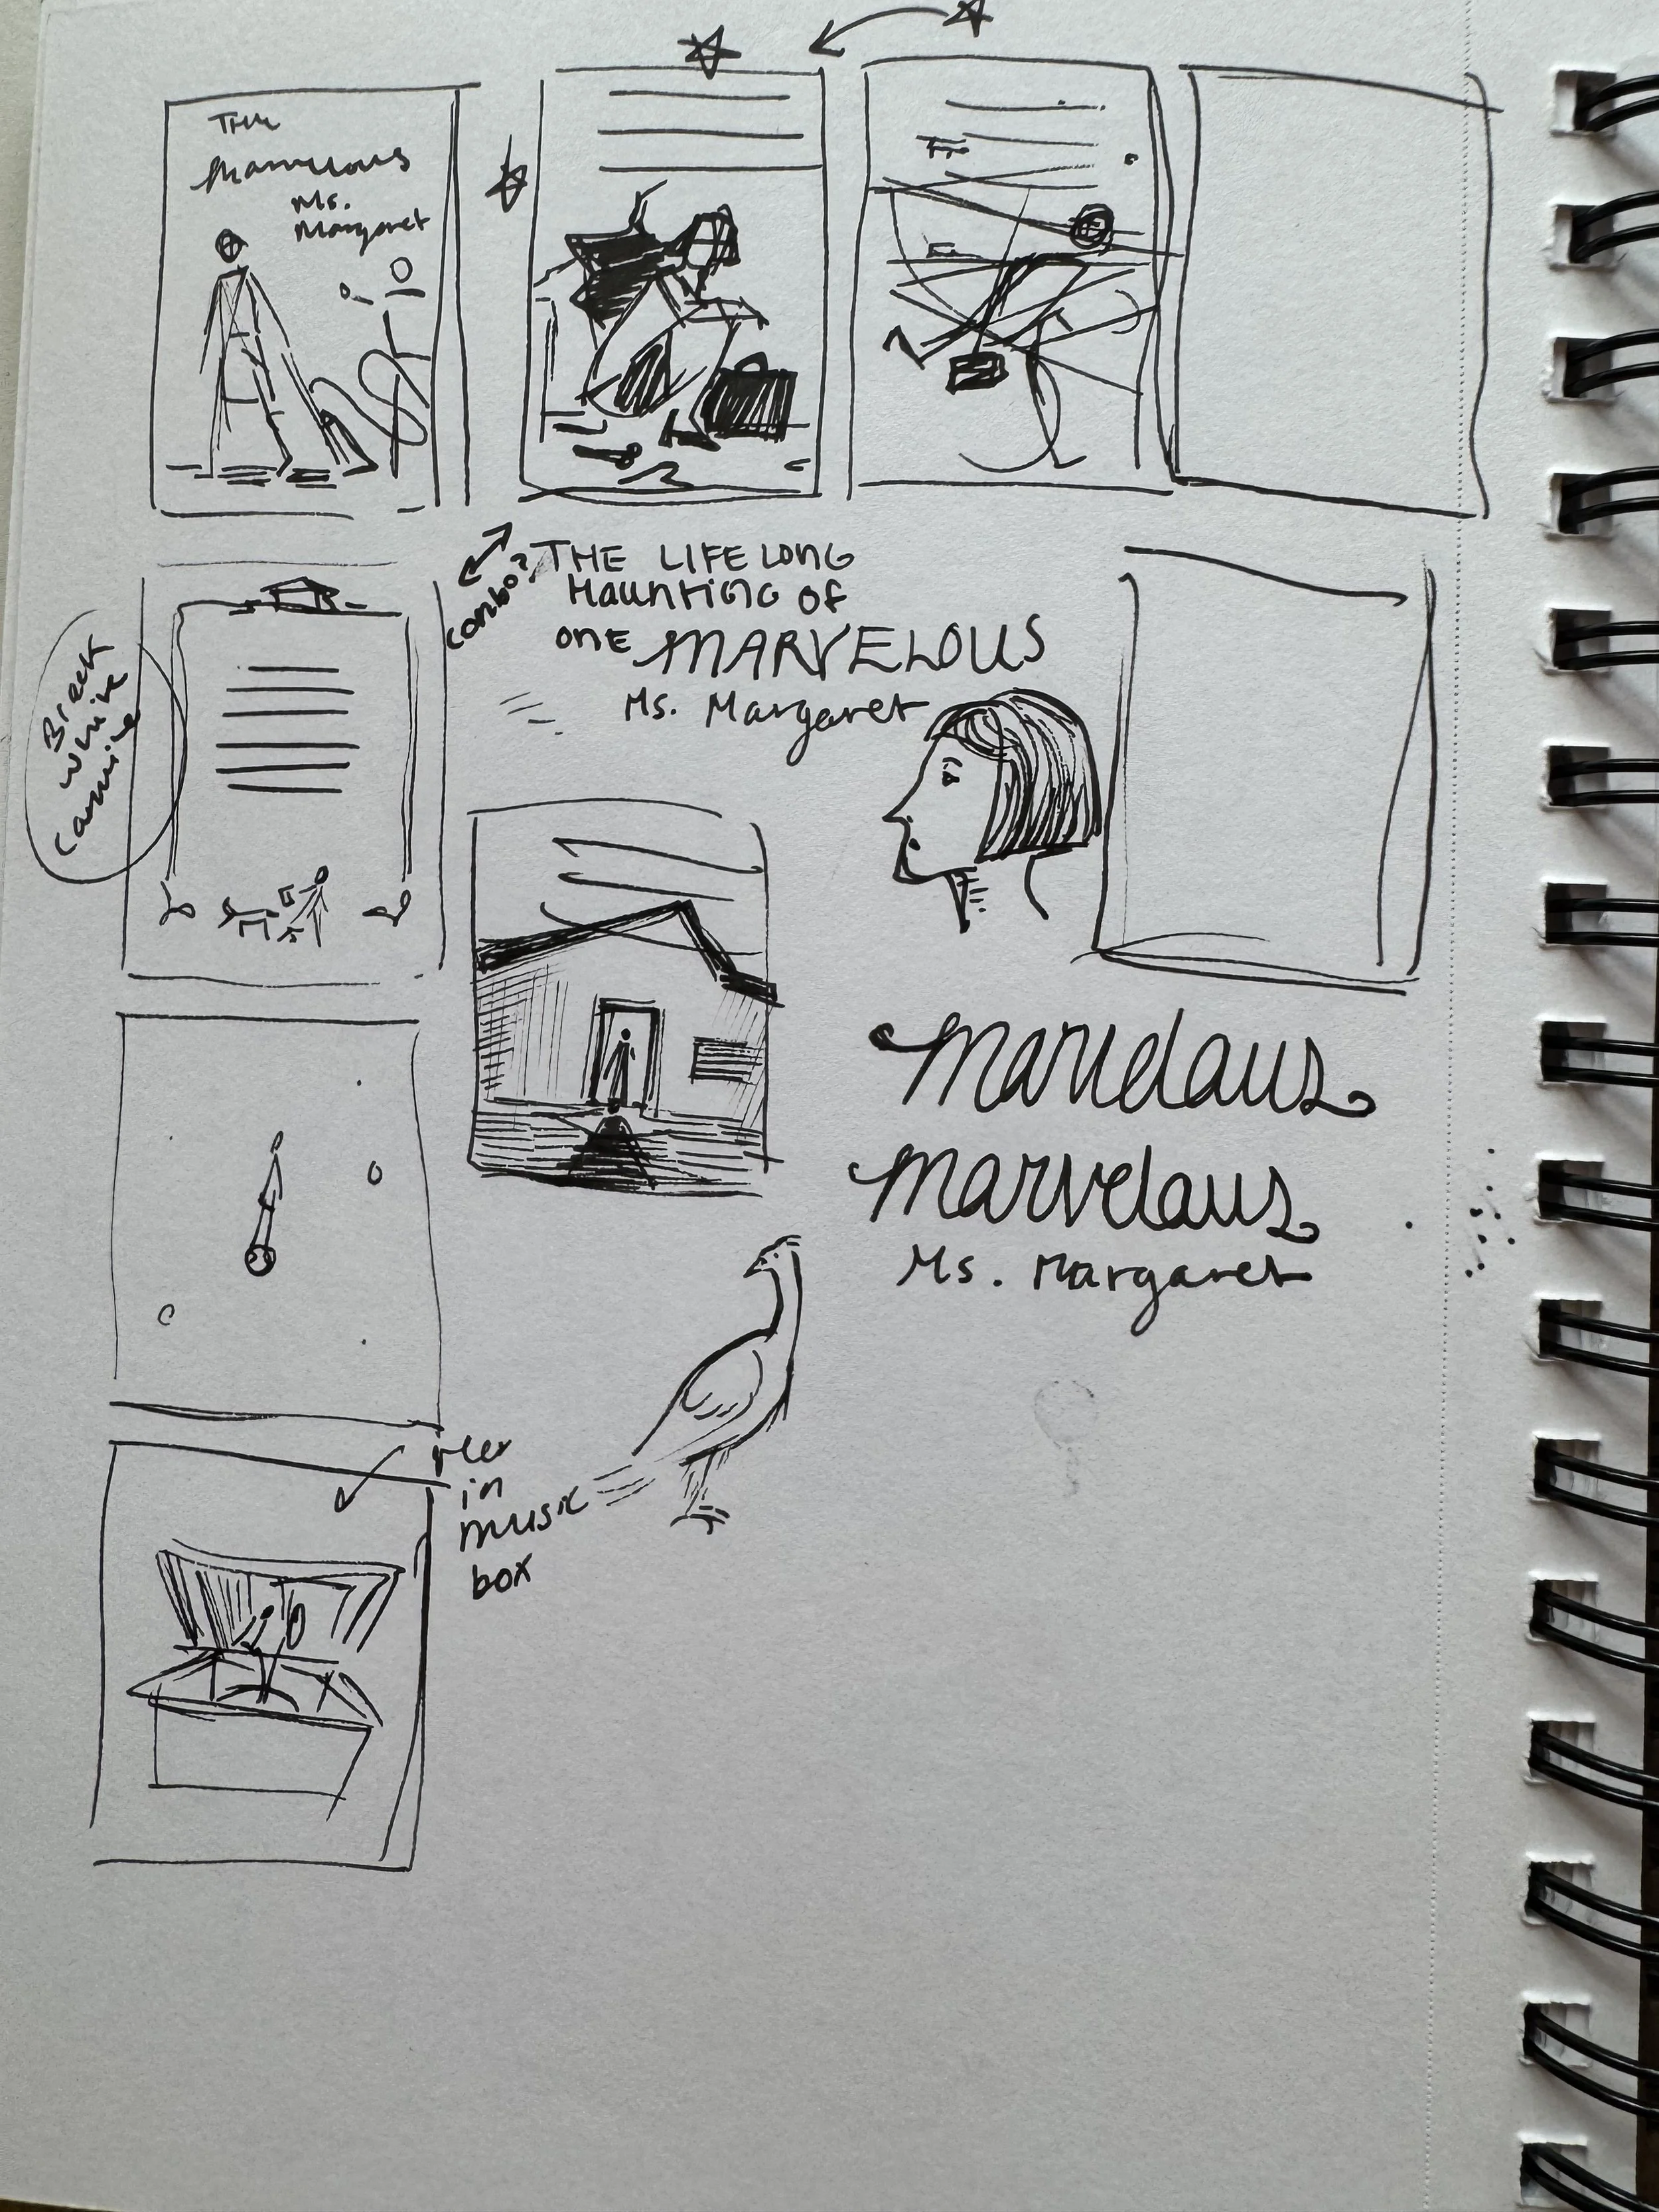 The
Marvelous
Ms.
Margaret
combo?
THE LIFELONG
HAUNTING OF
ONE MARVELOUS
Ms. Margaret
Break
while
Marvelous
Marvelous
Ms. Margaret
in
music
box